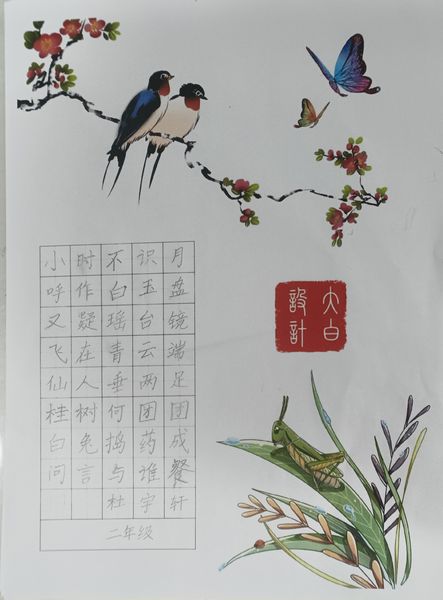 小时不识月
呼作白玉盘
又疑瑶台镜
飞在青云端
仙人垂两足
桂树何团团
白兔捣药成
问言与谁餐
杜宇轩
二年级
大白
設計